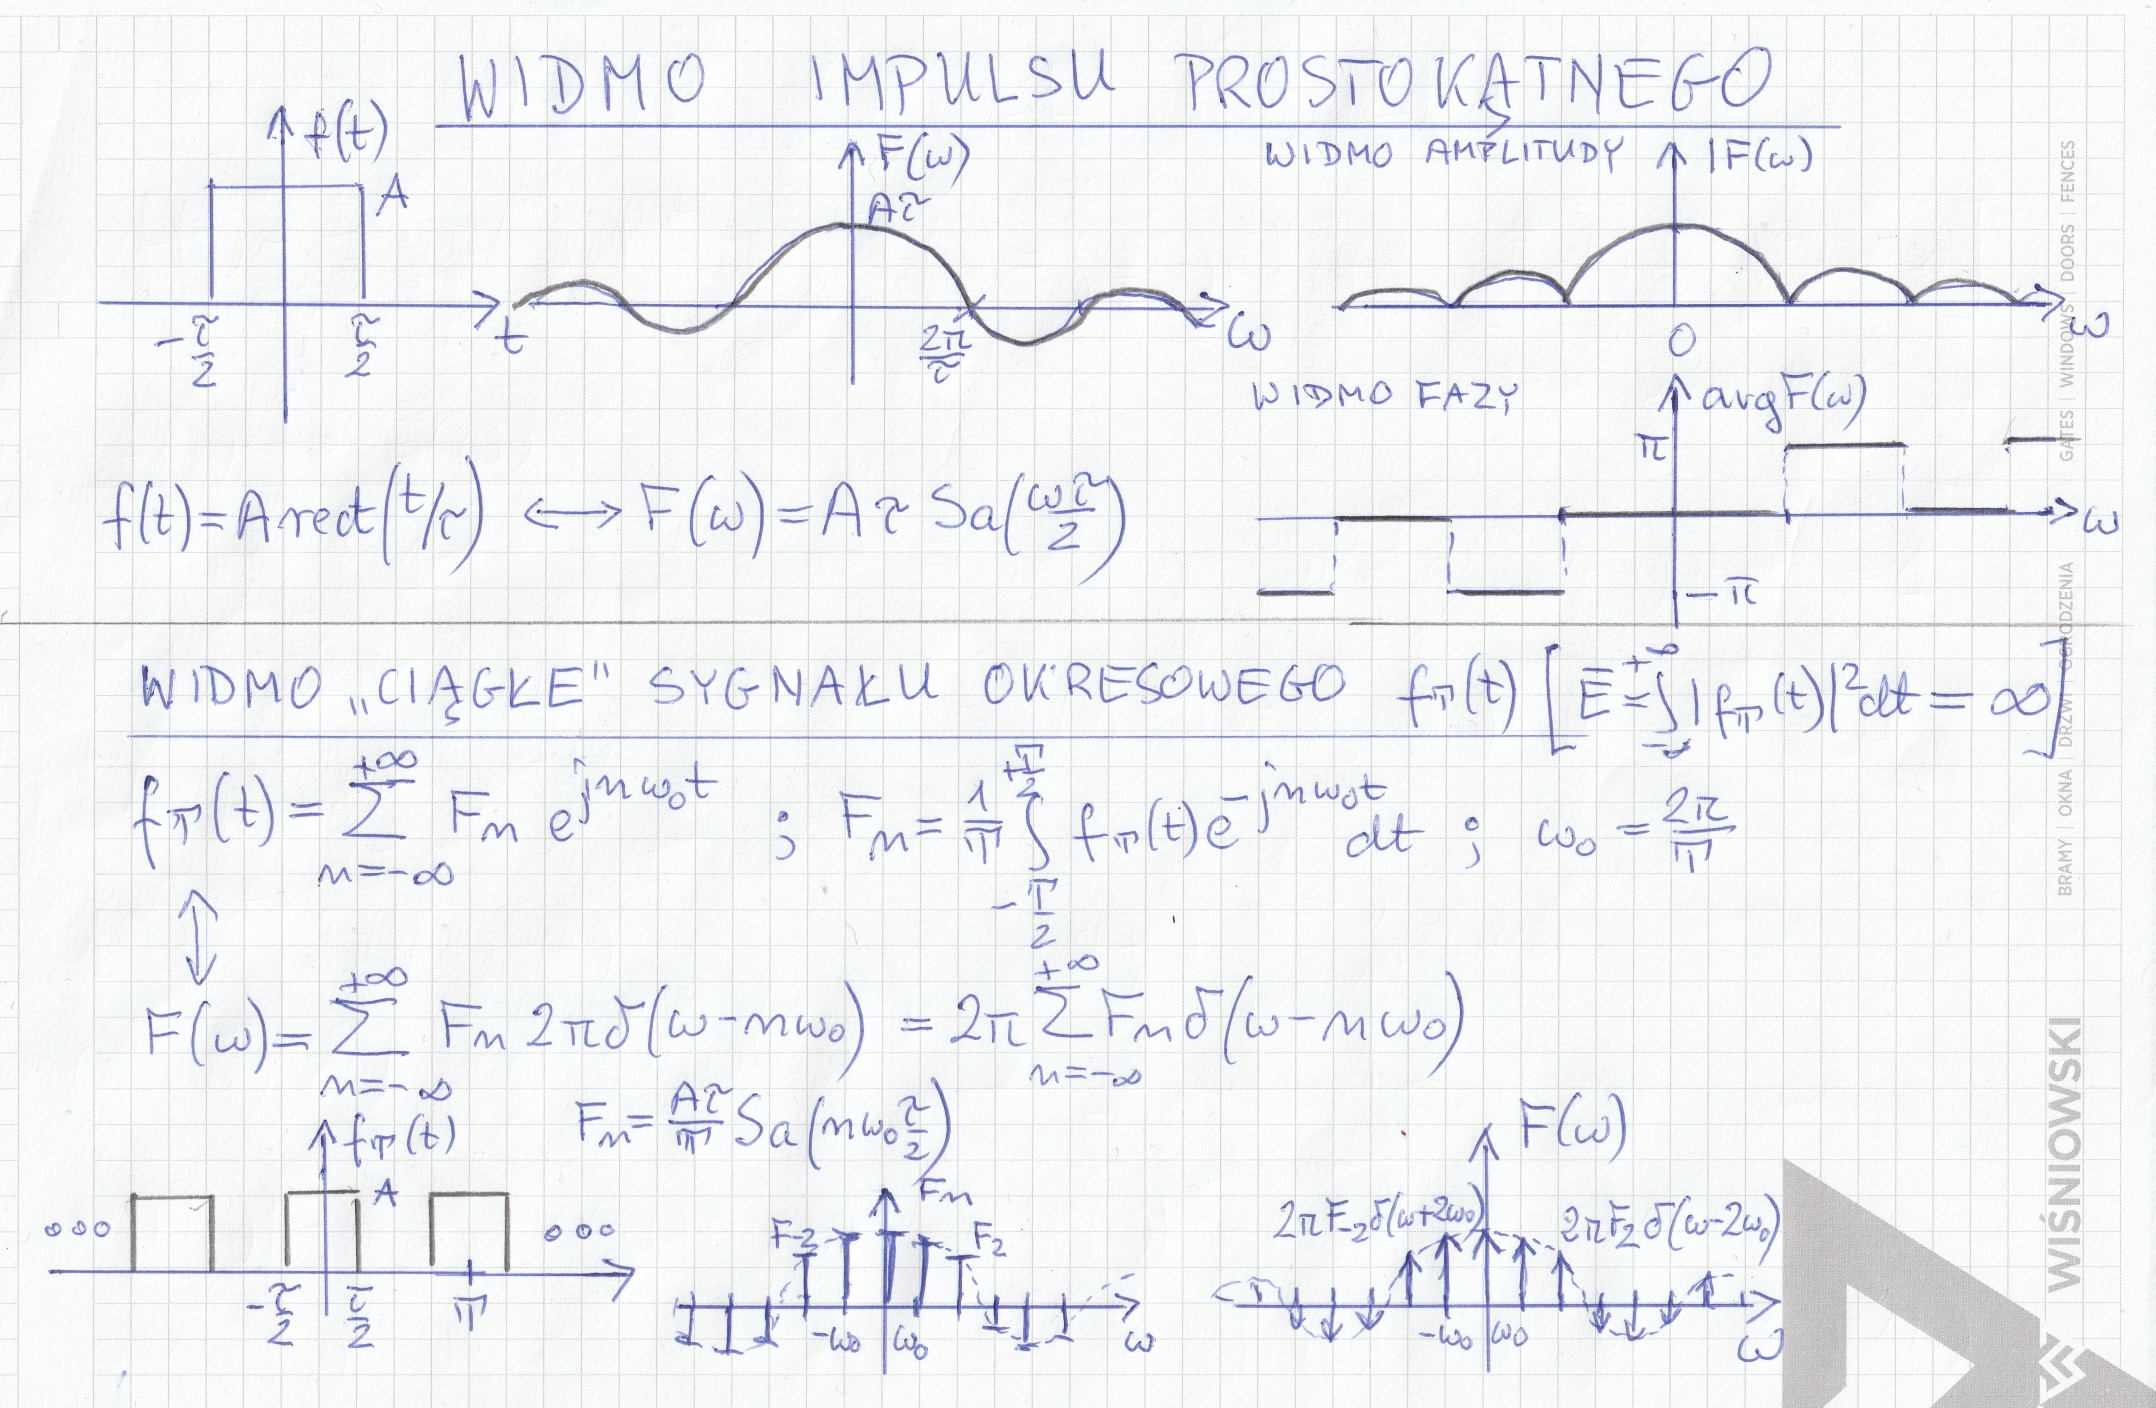 WIDMO IMPULSU PROSTOKĄTNEGO
f(t)
A
-τ/2
τ/2
t
F(ω)
Aτ
2π/τ
ω
WIDMO AMPLITUDY
|F(ω)
0
ω
WIDMO FAZY
argF(ω)
π
-π
ω
f(t)=A rect(t/τ) ⟷ F(ω)=Aτ Sa(ωτ/2)
WIDMO „CIĄGŁE" SYGNAŁU OKRESOWEGO f_T(t) [E=∫_{-∞}^{+∞}|f_T(t)|²dt=∞]
f_T(t)=∑_{n=-∞}^{+∞} F_n e^{jnω₀t} ; F_n=1/T ∫_{-T/2}^{+T/2} f_T(t)e^{-jnω₀t}dt ; ω₀=2π/T
↕
F(ω)=∑_{n=-∞}^{+∞} F_n 2πδ(ω-nω₀) = 2π∑_{n=-∞}^{+∞}F_n δ(ω-nω₀)
F_n=Aτ/T Sa(nω₀τ/2)
f_T(t)
A
-τ/2
τ/2
T
F_n
F_-2
F_2
-ω₀
ω₀
ω
F(ω)
2πF_-2 δ(ω+2ω₀)
2πF_2 δ(ω-2ω₀)
-ω₀
ω₀
ω
GATES | WINDOWS | DOORS | FENCES
BRAMY | OKNA | DRZWI | OGRODZENIA
WIŚNIOWSKI